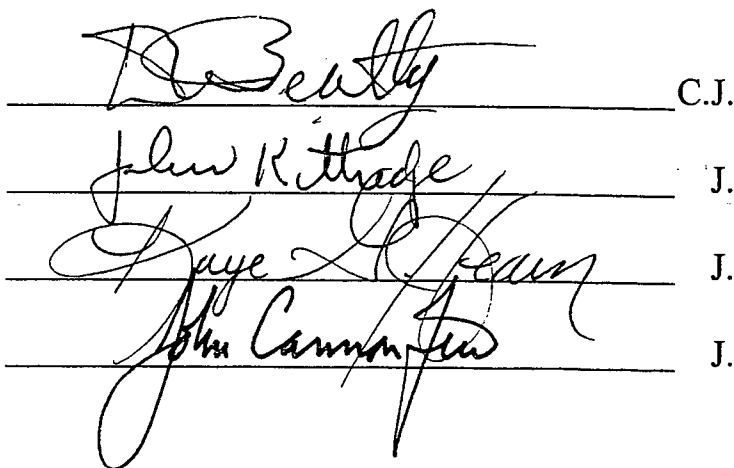 D Beatty C.J.
John Kittredge J.
Kaye G Hearn J.
John Cannon Few J.